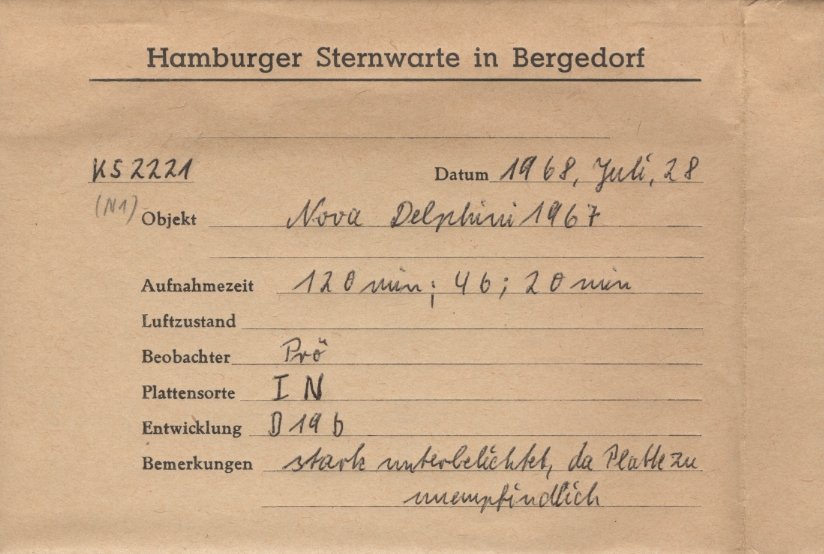 Hamburger Sternwarte in Bergedorf
KS 2221 Datum 1968, Juli, 28
(N1) Objekt Nova Delphini 1967
Aufnahmezeit 120 min; 46; 20 min
Luftzustand
Beobachter Prö
Plattensorte I N
Entwicklung D 19 b
Bemerkungen stark unterbelichtet, da Platte zu
unempfindlich